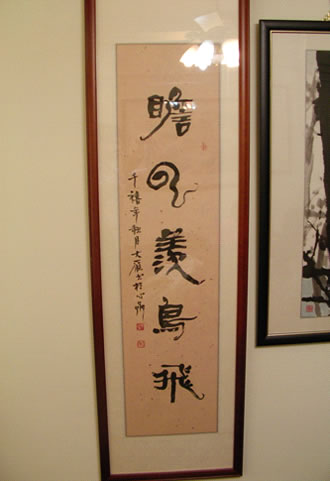 瞻云羨鳥飛
千禧年秋月大書於心齋